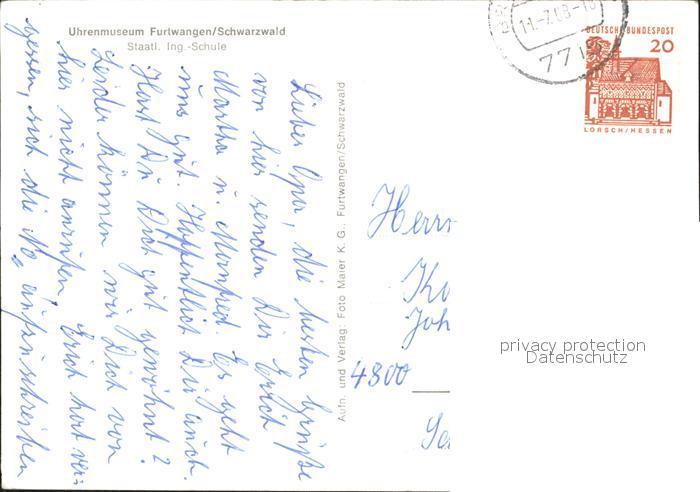 Uhrenmuseum Furtwangen/Schwarzwald
Staatl. Ing.-Schule
Lieber Opa, die besten Grüße
von hier senden Dir Erich
Martha u. Manfred. Es geht
uns gut. Hoffentlich Dir auch.
Hast Du Dich gut gewöhnt?
Leider können wir Dich von
hier nicht anrufen, Erich hat ver-
gessen, sich die No. aufzuschreiben
Aufn. und Verlag: Foto Maier K. G., Furtwangen/Schwarzwald
11.-7.68-18
771
DEUTSCHE BUNDESPOST
20
LORSCH/HESSEN
Herrn
Ko
Joh
4800
privacy protection
Datenschutz